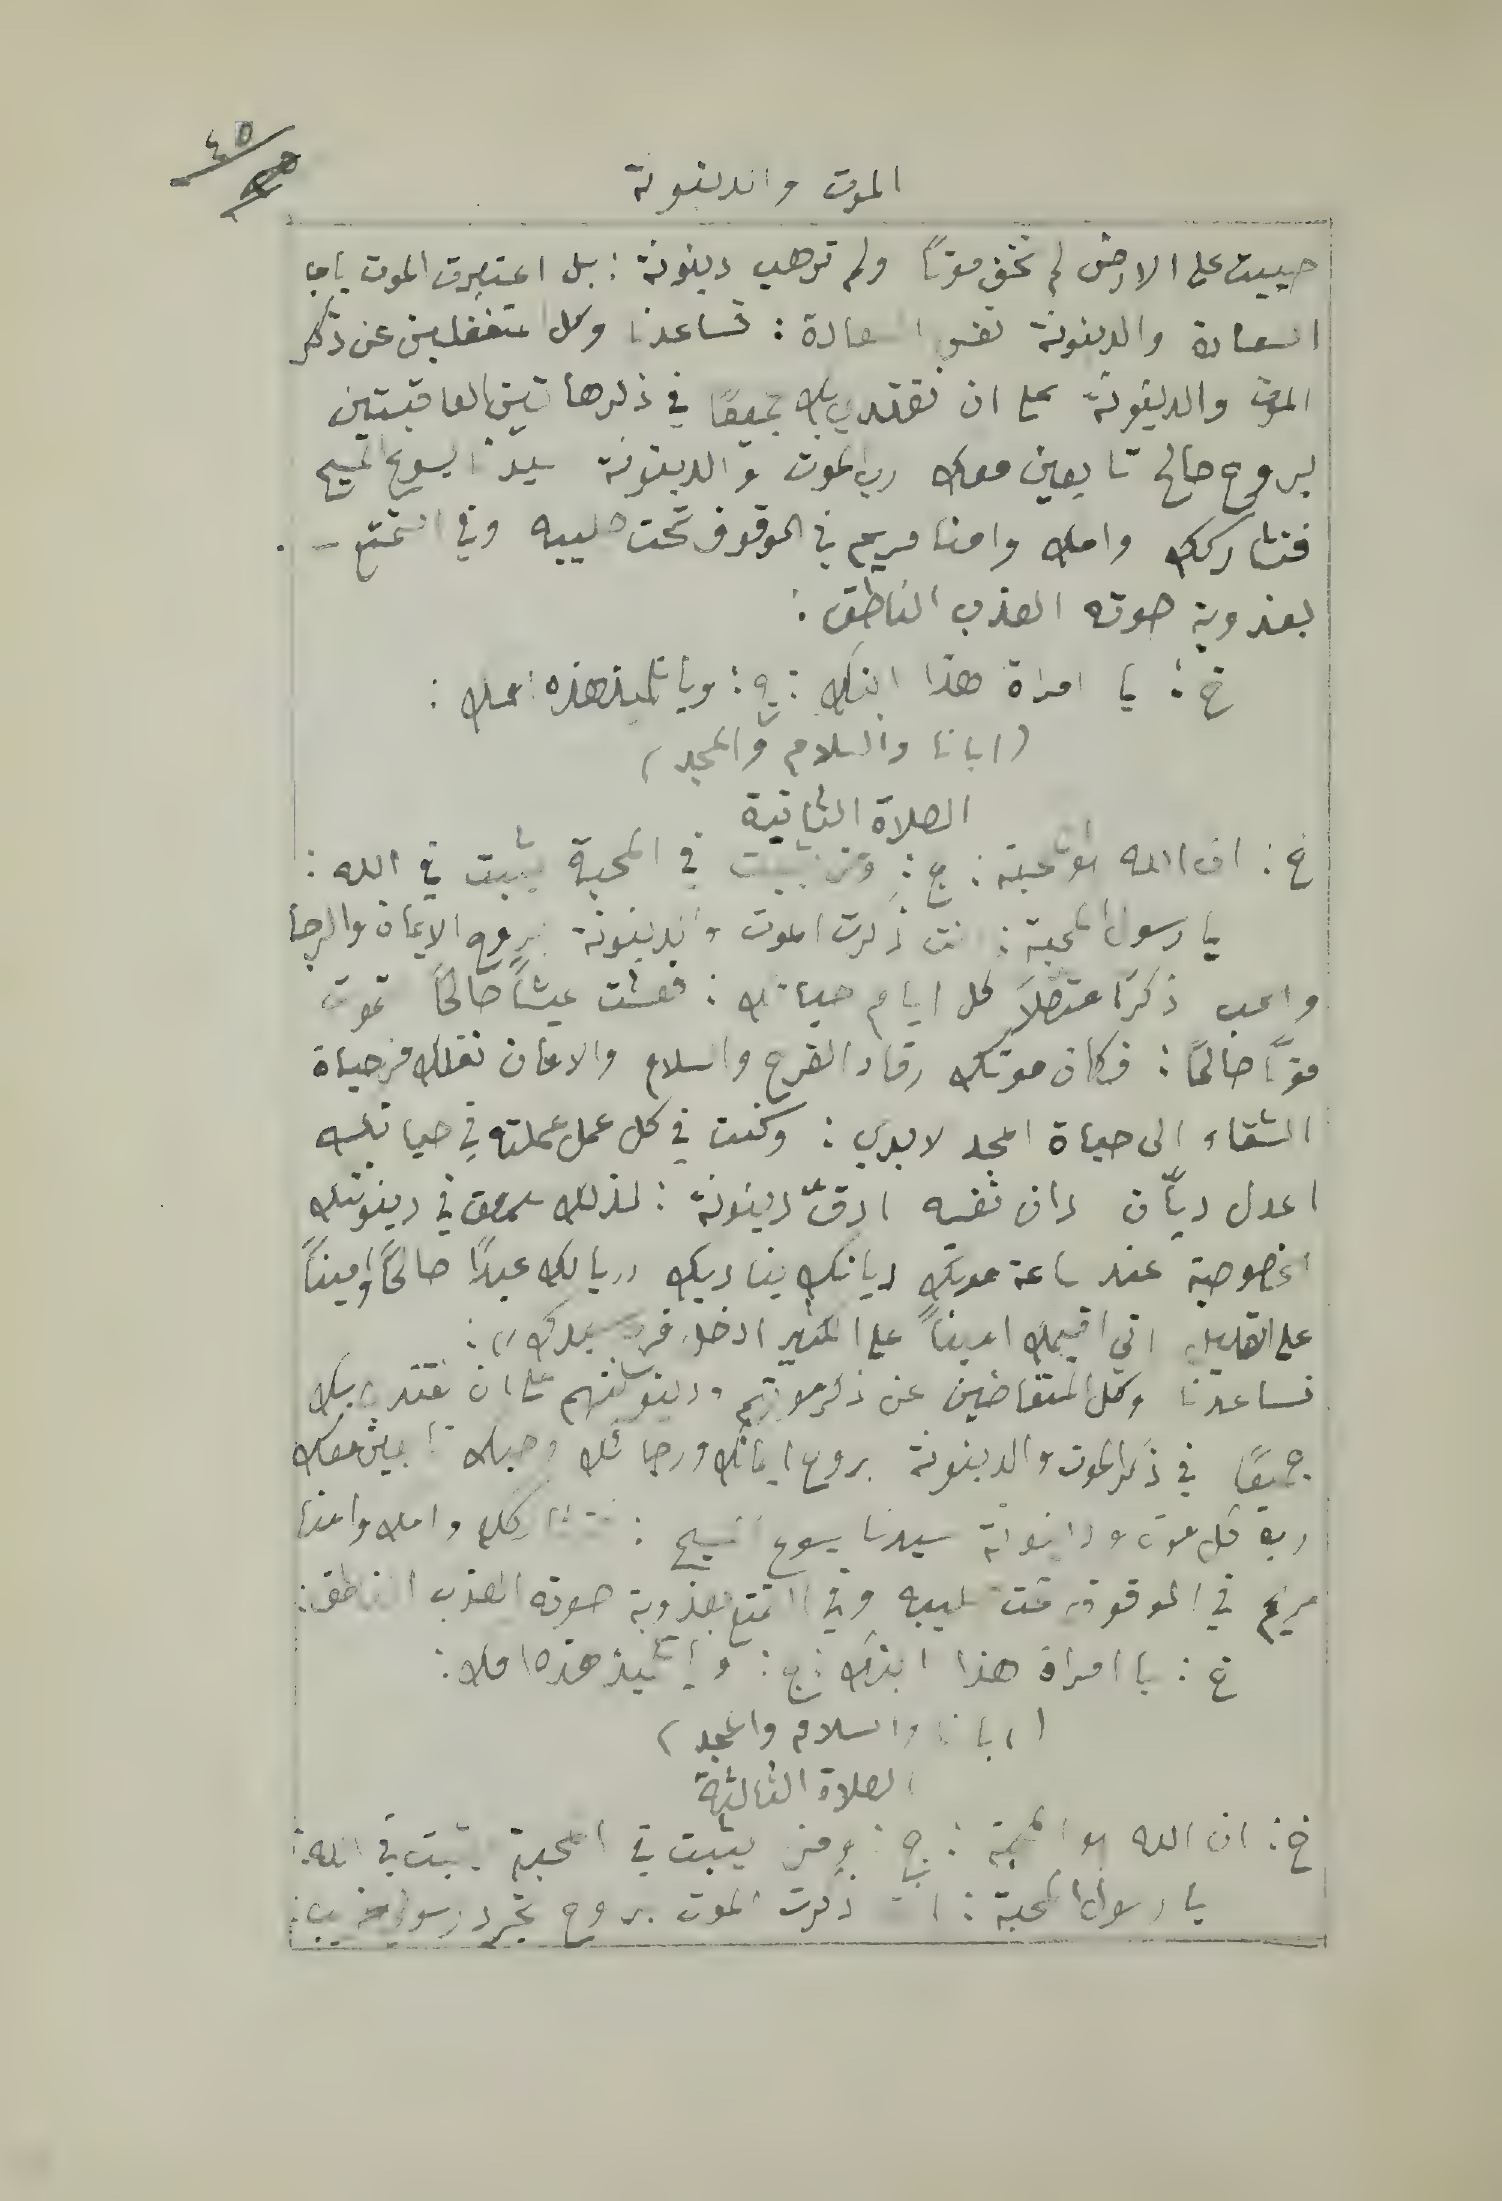 ٤٥
الموت والدينونة
حييت على الارض لم تخف موتًا ولم ترهب دينونة : بل اعتبرت الموت باب
السعادة والدينونة نفس السعادة : فساعدنا وكل متغفلين عن ذكر
الموت والدينونة على ان نقتدي بك جميعًا في ذكر هاتين العاقبتين
بروح صالح تابعين معك رب الموت والدينونة سيدنا يسوع المسيح
فنشاركك وامك وامنا مريم في الوقوف تحت صليبه وفي التمتع -
بعذوبة صوته العذب الناطق :
خ : يا امراة هذا ابنك : ج : ويا تلميذ هذه امك :
(ابانا والسلام والمجد)
الصلاة الثانية
خ : ان الله هو محبة : ج : ومن يثبت في المحبة يثبت في الله :
يا رسول المحبة : انت ذكرت الموت والدينونة بروح الايمان والرجا
والحب ذكرًا متصلاً كل ايام حياتك : فعشت عيشًا صالحًا تموت
موتًا صالحًا : فكان موتك رقاد الفرح والسلام والامان نقلك من حياة
الشقاء الى حياة المجد لابدي : وكنت في كل عمل عملته في حياتك
اعدل ديّان دان نفسه ادقّ دينونة : لذلك سمعت في دينونتك
الخصوصية عند ساعة موتك ديانك يناديك ,,يا لك عبدًا صالحًا وامينًا
على القليل اني اقيمك امينًا على الكثير ادخل فرح سيدك,, :
فساعدنا وكل المتغاضين عن ذكر موتهم ودينونتهم على ان نقتدي بك
جميعًا في ذكر الموت والدينونة بروح ايمانك ورجائك وحبك تابعين معك
رب كل موت ودينونة سيدنا يسوع المسيح : فنشاركك وامك وامنا
مريم في الوقوف تحت صليبه وفي التمتع بعذوبة صوته العذب الناطق :
خ : يا امراة هذا ابنك : ج : ويا تلميذ هذه امك :
(ابانا والسلام والمجد)
الصلاة الثالثة
خ : ان الله هو المحبة : ج : ومن يثبت في المحبة يثبت في الله :
يا رسول المحبة : انت ذكرت الموت بروح تجرد رسولي